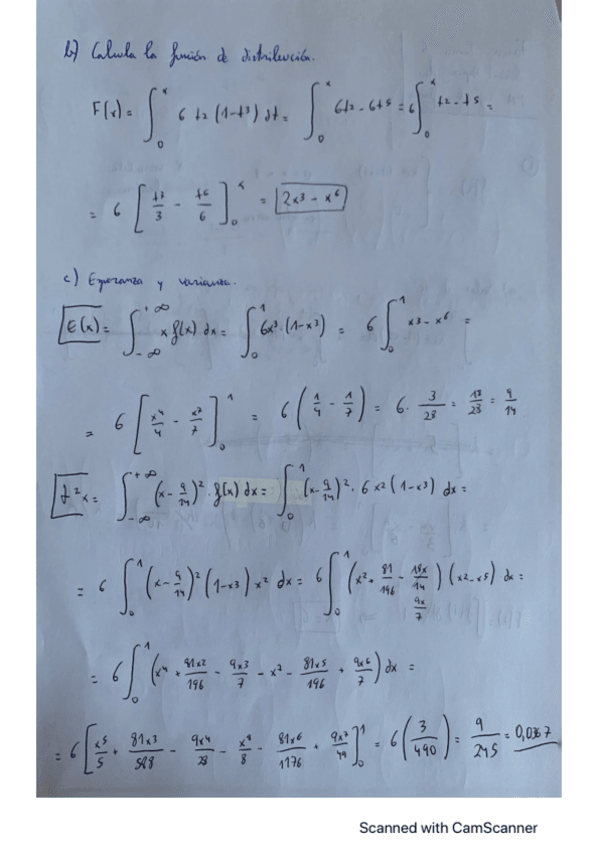 b) Calcula la función de distribución.
F(x) = ∫₀ˣ 6t²(1-t³) dt = ∫₀ˣ 6t² - 6t⁵ = 6∫₀ˣ t² - t⁵ =
= 6 [t³/3 - t⁶/6]₀ˣ = 2x³ - x⁶
c) Esperanza y varianza.
E(x) = ∫₋∞⁺∞ x f(x) dx = ∫₀¹ 6x³·(1-x³) = 6∫₀¹ x³ - x⁶ =
= 6 [x⁴/4 - x⁷/7]₀¹ = 6 (1/4 - 1/7) = 6 · 3/28 = 18/28 = 9/14
²x = ∫₋∞⁺∞ (x - 9/14)² · f(x) dx = ∫₀¹ (x - 9/14)² · 6x²(1-x³) dx =
= 6 ∫₀¹ (x - 9/14)² (1-x³) x² dx = 6 ∫₀¹ (x² + 81/196 - 18x/14) (x² - x⁵) dx =
9x/7
= 6 ∫₀¹ (x⁴ + 81x²/196 - 9x³/7 - x⁷ - 81x⁵/196 + 9x⁶/7) dx =
= 6 [x⁵/5 + 81x³/588 - 9x⁴/28 - x⁸/8 - 81x⁶/1176 + 9x⁷/49]₀¹ = 6 (3/490) = 9/245 = 0,0367
Scanned with CamScanner